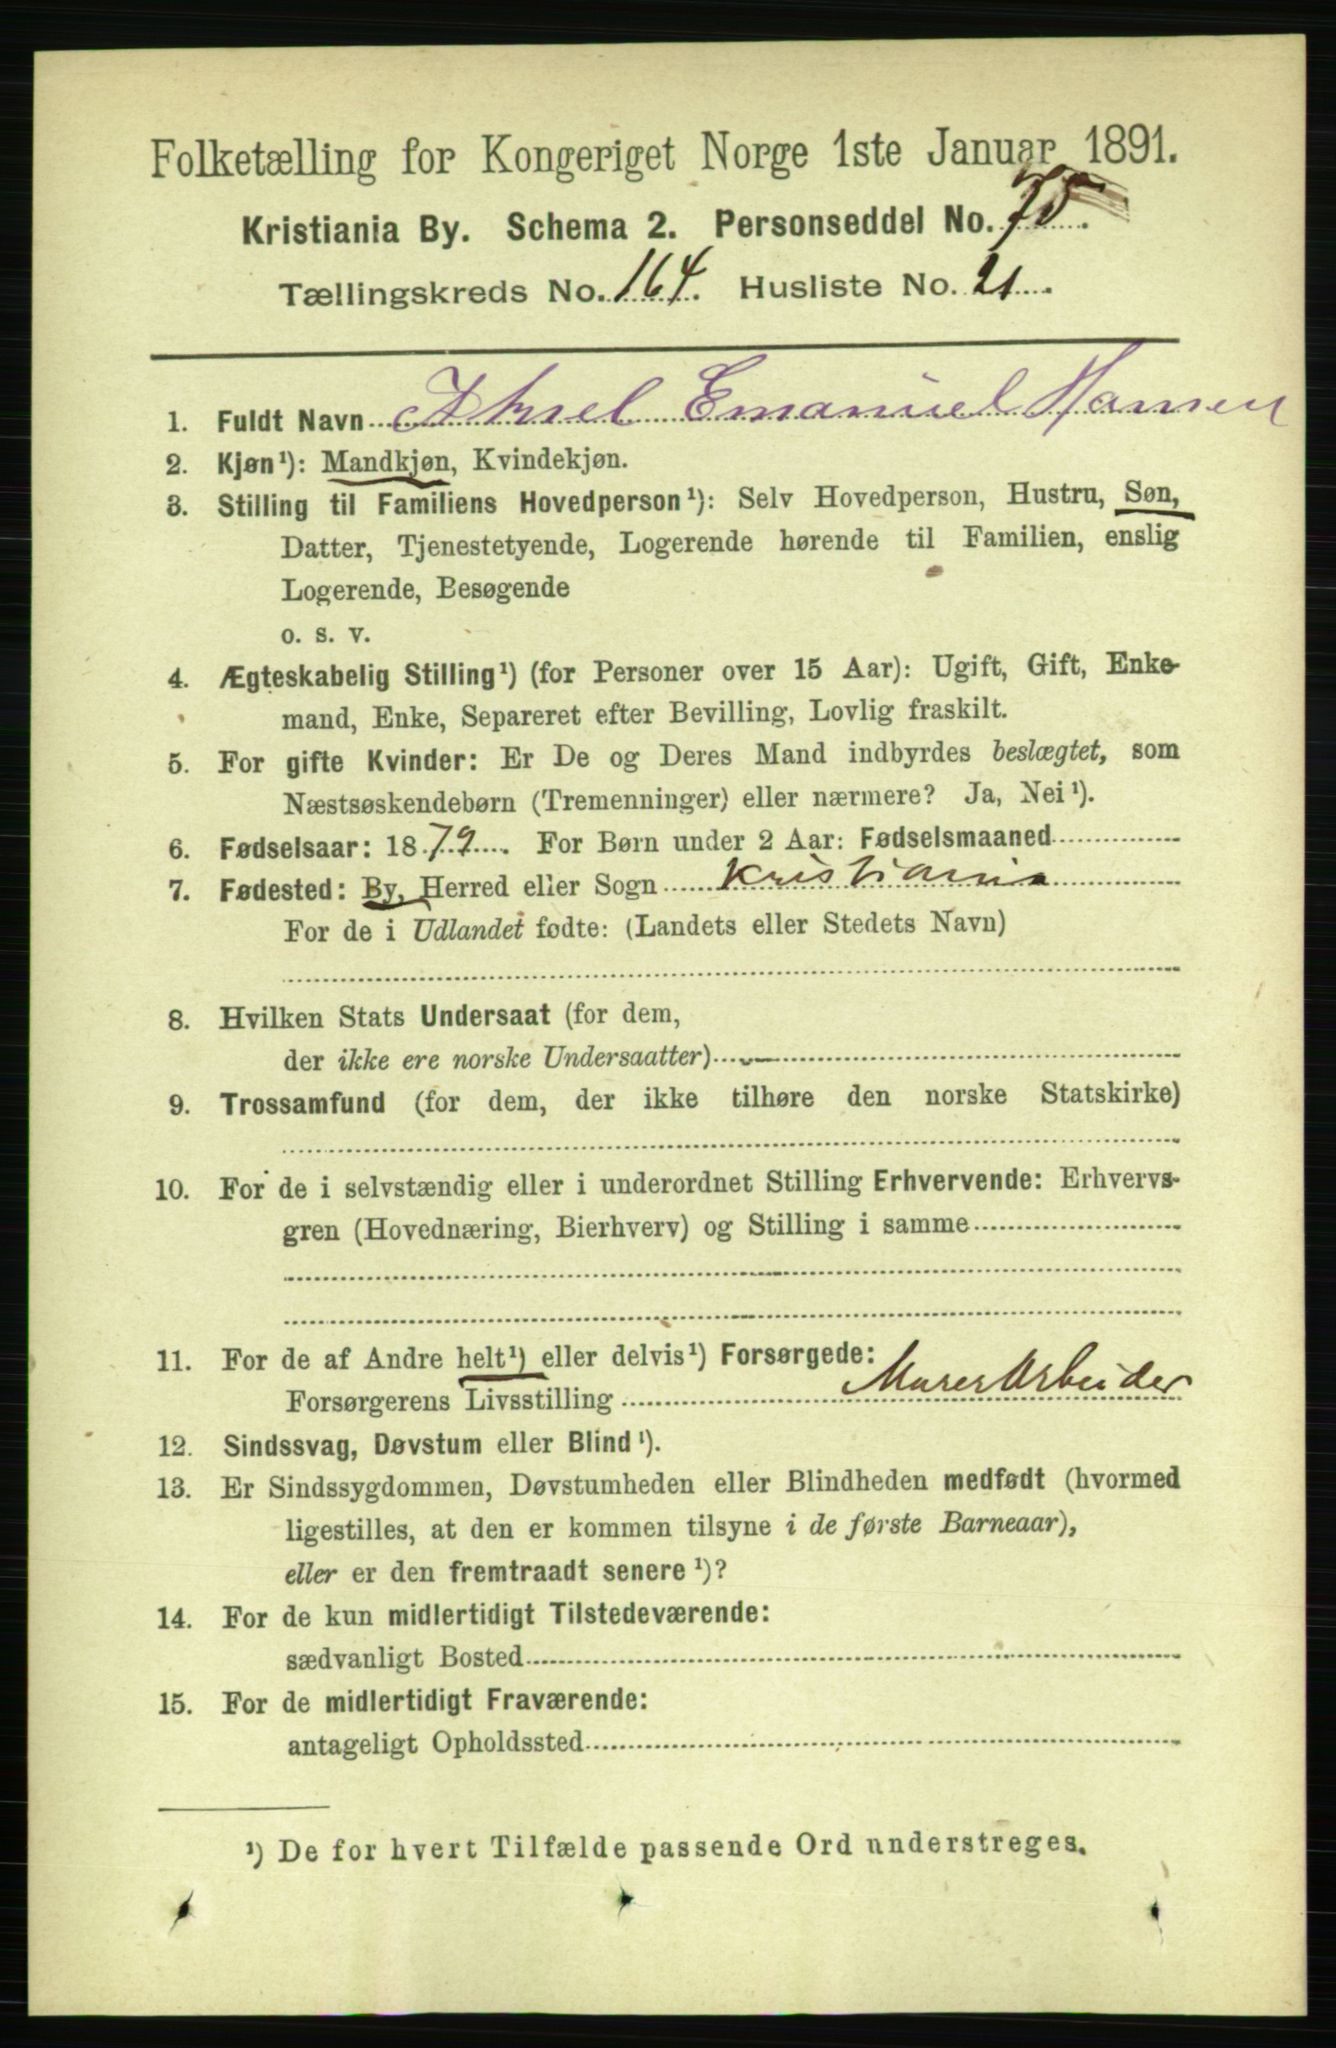 Folketælling for Kongeriget Norge 1ste Januar 1891.
Kristiania By. Schema 2. Personseddel No. 75.
Tællingskreds No. 164. Husliste No. 21.
1. Fuldt Navn Axel Emanuel Hansen
2. Kjøn¹): Mandkjøn, Kvindekjøn.
3. Stilling til Familiens Hovedperson¹): Selv Hovedperson, Hustru, Søn,
Datter, Tjenestetyende, Logerende hørende til Familien, enslig
Logerende, Besøgende
o. s. v.
4. Ægteskabelig Stilling¹) (for Personer over 15 Aar): Ugift, Gift, Enke-
mand, Enke, Separeret efter Bevilling, Lovlig fraskilt.
5. For gifte Kvinder: Er De og Deres Mand indbyrdes beslægtet, som
Næstsøskendebørn (Tremenninger) eller nærmere? Ja, Nei¹).
6. Fødselsaar: 1879. For Børn under 2 Aar: Fødselsmaaned
7. Fødested: By, Herred eller Sogn Kristiania
For de i Udlandet fødte: (Landets eller Stedets Navn)
8. Hvilken Stats Undersaat (for dem,
der ikke ere norske Undersaatter)
9. Trossamfund (for dem, der ikke tilhøre den norske Statskirke)
10. For de i selvstændig eller i underordnet Stilling Erhvervende: Erhvervs-
gren (Hovednæring, Bierhverv) og Stilling i samme
11. For de af Andre helt¹) eller delvis¹) Forsørgede:
Forsørgerens Livsstilling Murer Arbeider
12. Sindssvag, Døvstum eller Blind¹).
13. Er Sindssygdommen, Døvstumheden eller Blindheden medfødt (hvormed
ligestilles, at den er kommen tilsyne i de første Barneaar),
eller er den fremtraadt senere¹)?
14. For de kun midlertidigt Tilstedeværende:
sædvanligt Bosted
15. For de midlertidigt Fraværende:
antageligt Opholdssted
¹) De for hvert Tilfælde passende Ord understreges.